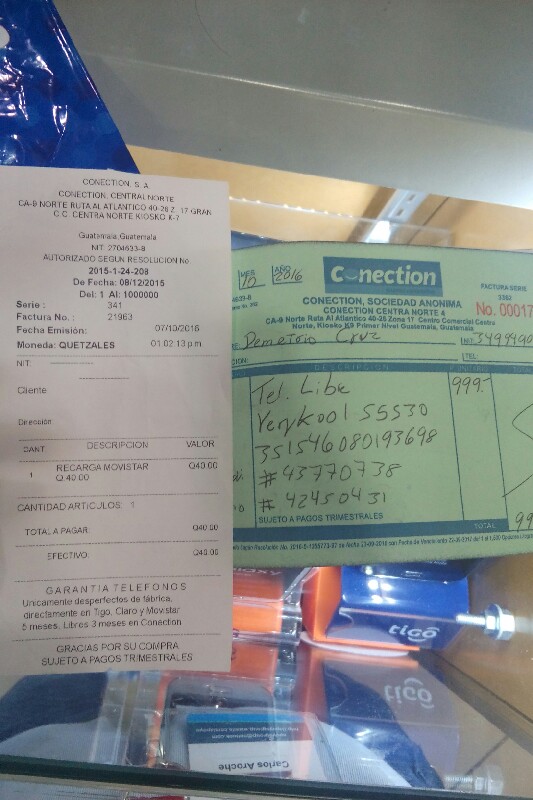 CONECTION, S. A.
CONECTION, CENTRAL NORTE
CA-9 NORTE RUTA AL ATLANTICO 40-26 Z. 17 GRAN
C.C. CENTRA NORTE KIOSKO K-7
Guatemala, Guatemala
NIT: 2704633-8
AUTORIZADO SEGUN RESOLUCION No
2015-1-24-208
De Fecha: 08/12/2015
Del: 1 Al: 1000000
Serie : 341
Factura No. : 21963
Fecha Emisión: 07/10/2016
Moneda: QUETZALES 01:02:13 p.m.
NIT:
Cliente
Dirección
CANT DESCRIPCION VALOR
1 RECARGA MOVISTAR Q40.00
Q.40.00
CANTIDAD ARTICULOS: 1
TOTAL A PAGAR: Q40.00
EFECTIVO: Q40.00
GARANTIA TELEFONOS
Unicamente desperfectos de fábrica,
directamente en Tigo, Claro y Movistar
6 meses, Libres 3 meses en Conection
GRACIAS POR SU COMPRA
SUJETO A PAGOS TRIMESTRALES
MES AÑO
10 2016
Conection
FACTURA SERIE
CONECTION, SOCIEDAD ANONIMA
CONECTION CENTRA NORTE 4
No. 00017
CA-9 Norte Ruta Al Atlantico 40-26 Zona 17 Centro Comercial Centra
Norte, Kiosko K9 Primer Nivel Guatemala, Guatemala
Demetrio Cruz NIT: 3499490
CION: TEL:
DESCRIPCION
Tel. Libe 999.-
Verykool S5530
351546080193698
# 43770738
# 42450431
SUJETO A PAGOS TRIMESTRALES
TOTAL 99
tigo
tigo
Carlos Aroche